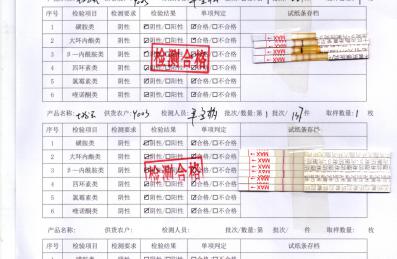 序号 检验项目 检测要求 检验结果 单项判定 试纸条存档
1 磺胺类 阴性 ☑阴性/☐阳性 ☑合格/☐不合格
2 大环内酯类 阴性 ☑阴性/☐阳性 ☑合格/☐不合格
3 β一内酰胺类 阴性 ☑阴性/☐阳性 ☑合格/☐不合格
4 四环素类 阴性 ☑阴性/☐阳性 ☑合格/☐不合格
5 氯霉素类 阴性 ☑阴性/☐阳性 ☑合格/☐不合格
6 喹诺酮类 阴性 ☑阴性/☐阳性 ☑合格/☐不合格
检测合格
MAX
产品名称: 供货农户: Y003 检测人员: 批次/数量:第 1 批次/ 137 件 取样数量: 1 枚
序号 检验项目 检测要求 检验结果 单项判定 试纸条存档
1 磺胺类 阴性 ☑阴性/☐阳性 ☑合格/☐不合格
2 大环内酯类 阴性 ☑阴性/☐阳性 ☑合格/☐不合格
3 β一内酰胺类 阴性 ☑阴性/☐阳性 ☑合格/☐不合格
4 四环素类 阴性 ☑阴性/☐阳性 ☑合格/☐不合格
5 氯霉素类 阴性 ☑阴性/☐阳性 ☑合格/☐不合格
6 喹诺酮类 阴性 ☑阴性/☐阳性 ☑合格/☐不合格
检测合格
MAX
MAX
MAX
MAX
MAX
产品名称: 供货农户: 检测人员: 批次/数量:第 批次/ 件 取样数量: 枚
序号 检验项目 检测要求 检验结果 单项判定 试纸条存档